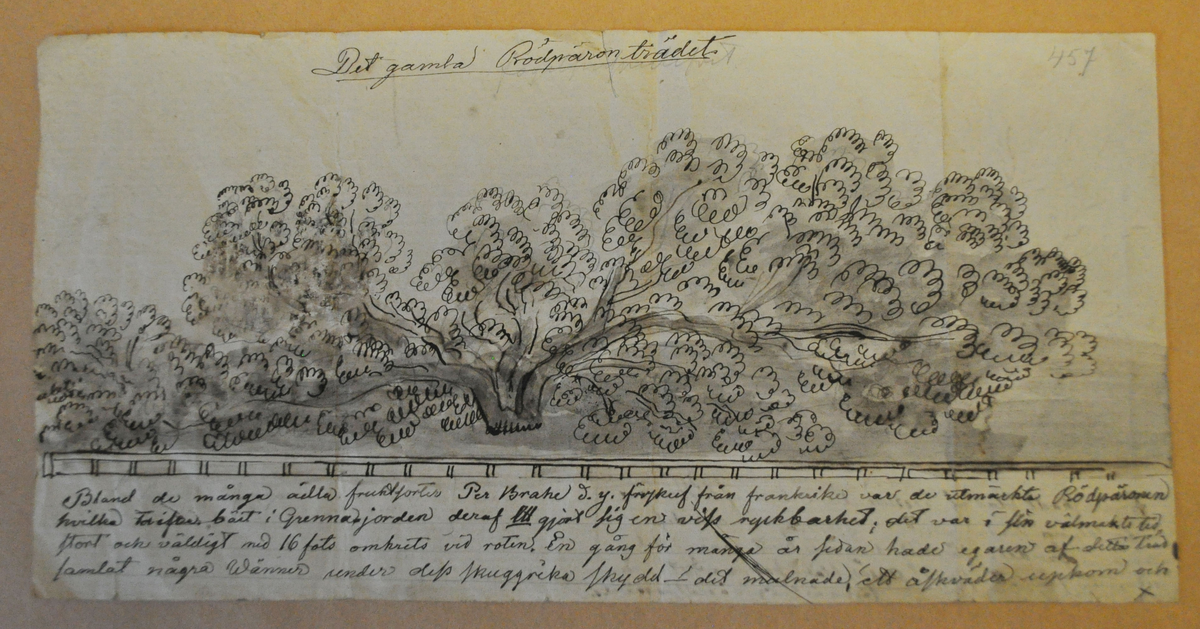 Det gamla Rödpäronträdet
457
Bland de många ädla fruktsorter Per Brahe d. y. från frankrike var de utmärkta Rödpäronen
hvilka bäst i Grennajorden deraf gjort sig en viss ryckbarhet; det var i sin välmakts tid
stort och väldigt md 16 fots omkrets vid roten. En gång för många år sedan hade egaren af detta träd
samlat några Wänner under dess skuggrika skydd – det mulnade, ett åskväder uppkom och